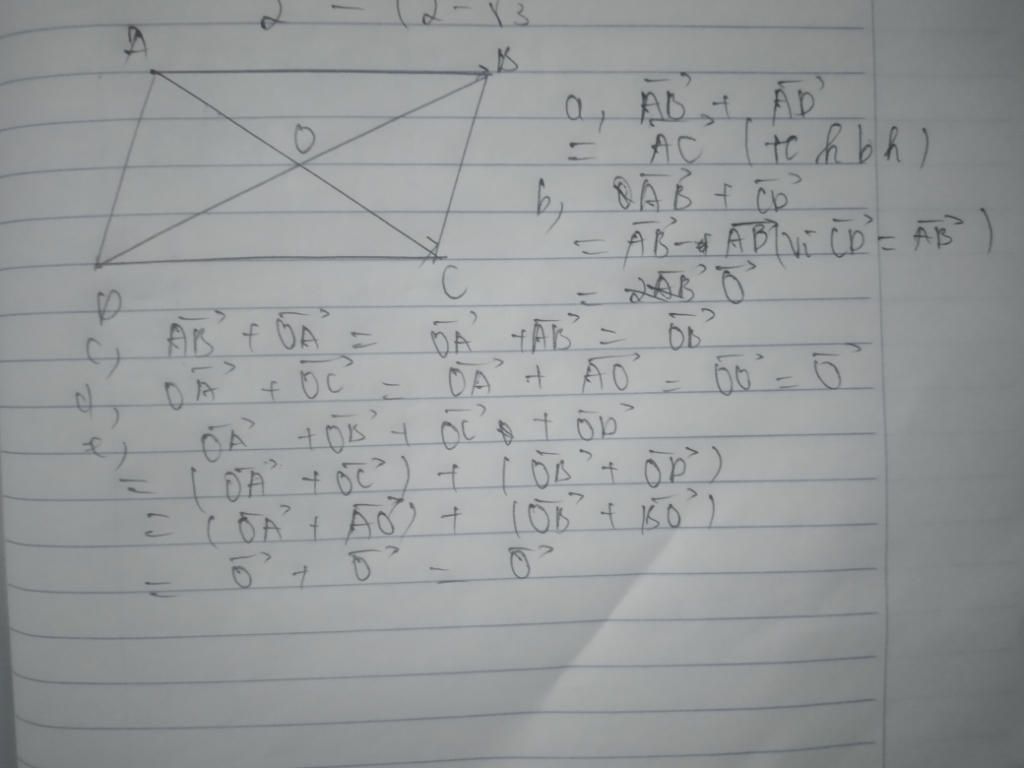 2 - (2-√3
A
B
O
D
C
a, AB + AD
= AC (tc hbh)
b, AB + CD
= AB - AB (vì CD = AB)
= O
c, AB + OA = OA + AB = OB
d, OA + OC = OA + AO = OO = O
e, OA + OB + OC + OD
= (OA + OC) + (OB + OD)
= (OA + AO) + (OB + BO)
= O + O = O